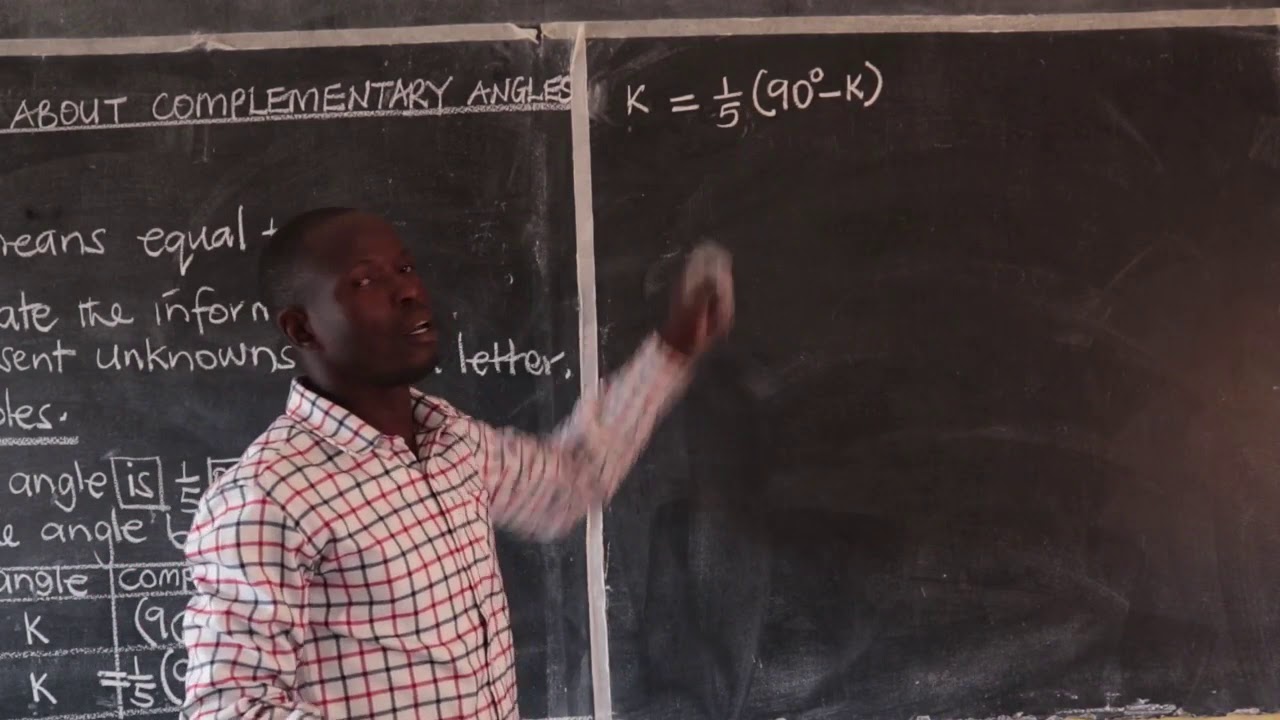 ABOUT COMPLEMENTARY ANGLES
means equal
ate the inform
sent unknowns letter.
les.
angle is 1/5
e angle b
angle comp
K (90
K = 1/5 (9
K = 1/5 (90° – K)